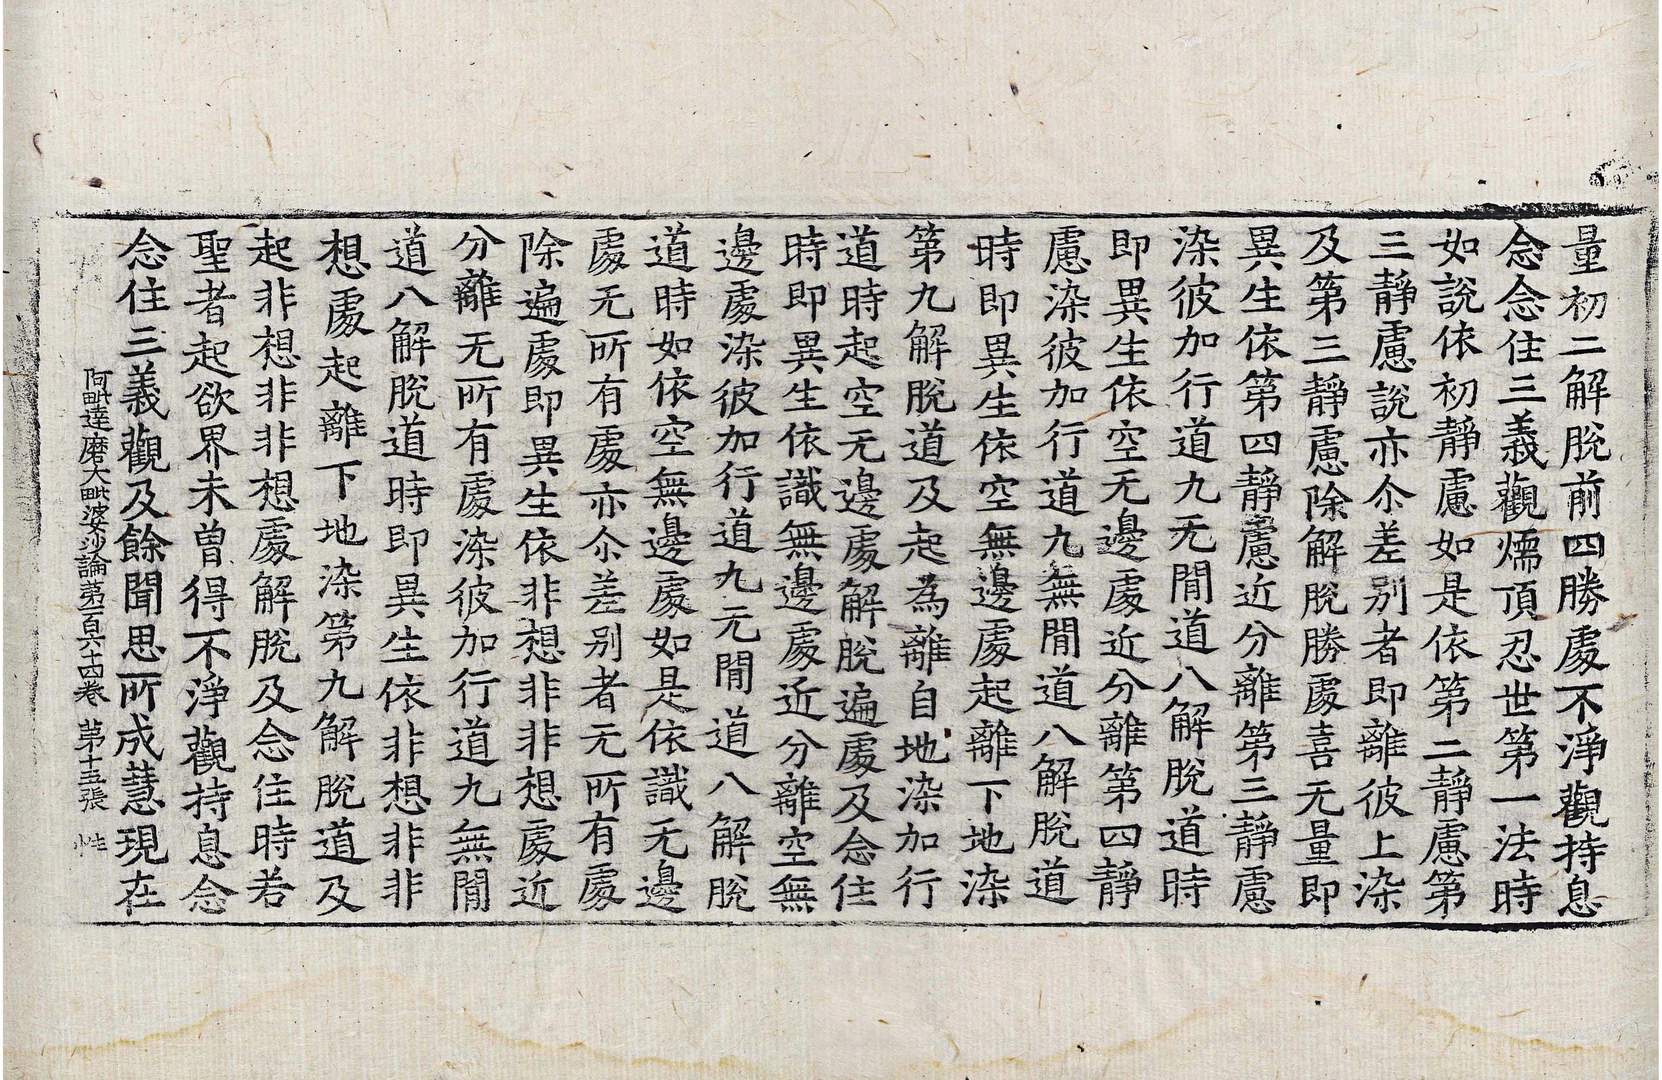 量初二解脫前四勝處不淨觀持息
念念住三義觀煗頂忍世第一法時
如說依初靜慮如是依第二靜慮第
三靜慮說亦尒差別者即離彼上染
及第三靜慮除解脫勝處喜无量即
異生依第四靜慮近分離第三靜慮
染彼加行道九无閒道八解脫道時
即異生依空无邊處近分離第四靜
慮染彼加行道九無閒道八解脫道
時即異生依空無邊處起離下地染
第九解脫道及起為離自地染加行
道時起空无邊處解脫遍處及念住
時即異生依識無邊處近分離空無
邊處染彼加行道九无閒道八解脫
道時如依空無邊處如是依識无邊
處无所有處亦尒差別者无所有處
除遍處即異生依非想非非想處近
分離无所有處染彼加行道九無閒
道八解脫道時即異生依非想非非
想處起離下地染第九解脫道及
起非想非非想處解脫及念住時若
聖者起欲界未曾得不淨觀持息念
念住三義觀及餘聞思所成慧現在
阿毗達磨大毗婆沙論第一百六十四卷 第十五張 性